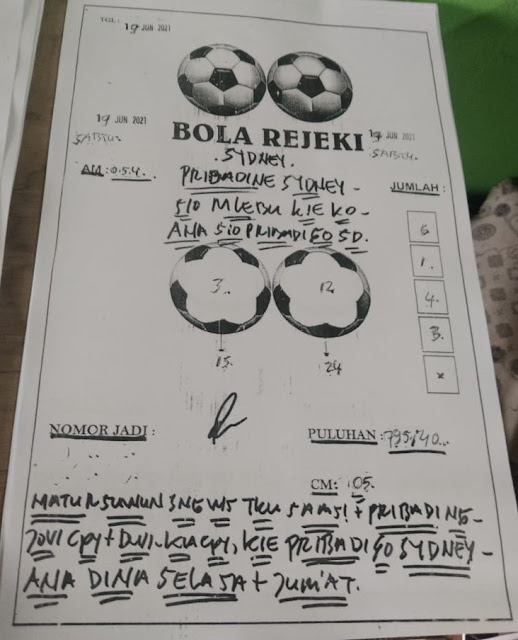 TGL: 19 JUN 2021
19 JUN 2021
SABTU.
BOLA REJEKI
19 JUN 2021
SABTU.
.SYDNEY.
AM: 0.5.4.
PRIBADINE SYDNEY-
JUMLAH :
SIO MLEBU KIE KO-
ANA SIO PRIBADI GO SD.
6
1.
4.
3.
x
3.. 12.
15. 24
NOMOR JADI :
PULUHAN : 795.40...
CM: 05.
MATUR SUWUN 3NEWS TKU SAMSI + PRIBADINE-
JOVI CPY + DWI. KIA CPY, KIE PRIBADI GO SYDNEY-
ANA DINA SELASA + JUM'AT.